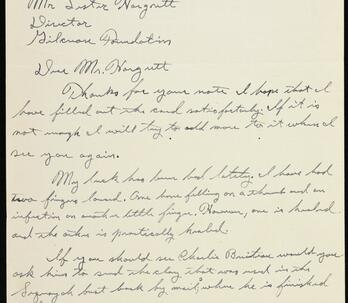 Mr Lester Hargrett
Director
Gilcrease Foundation
Dear Mr. Hargrett
Thanks for your note. I hope that I
have filled out the card satisfactorily. If it is
not enough I will try to add more to it when I
see you again.
My luck has been bad lately. I have had
two fingers lanced. One bone felling on a thumb and an
infection on another little finger. However, one is healed
and the other is practically healed.
If you should see Charlie would you
ask him to send the clay that was used in the
Sequoyah bust back by mail, when he is finished